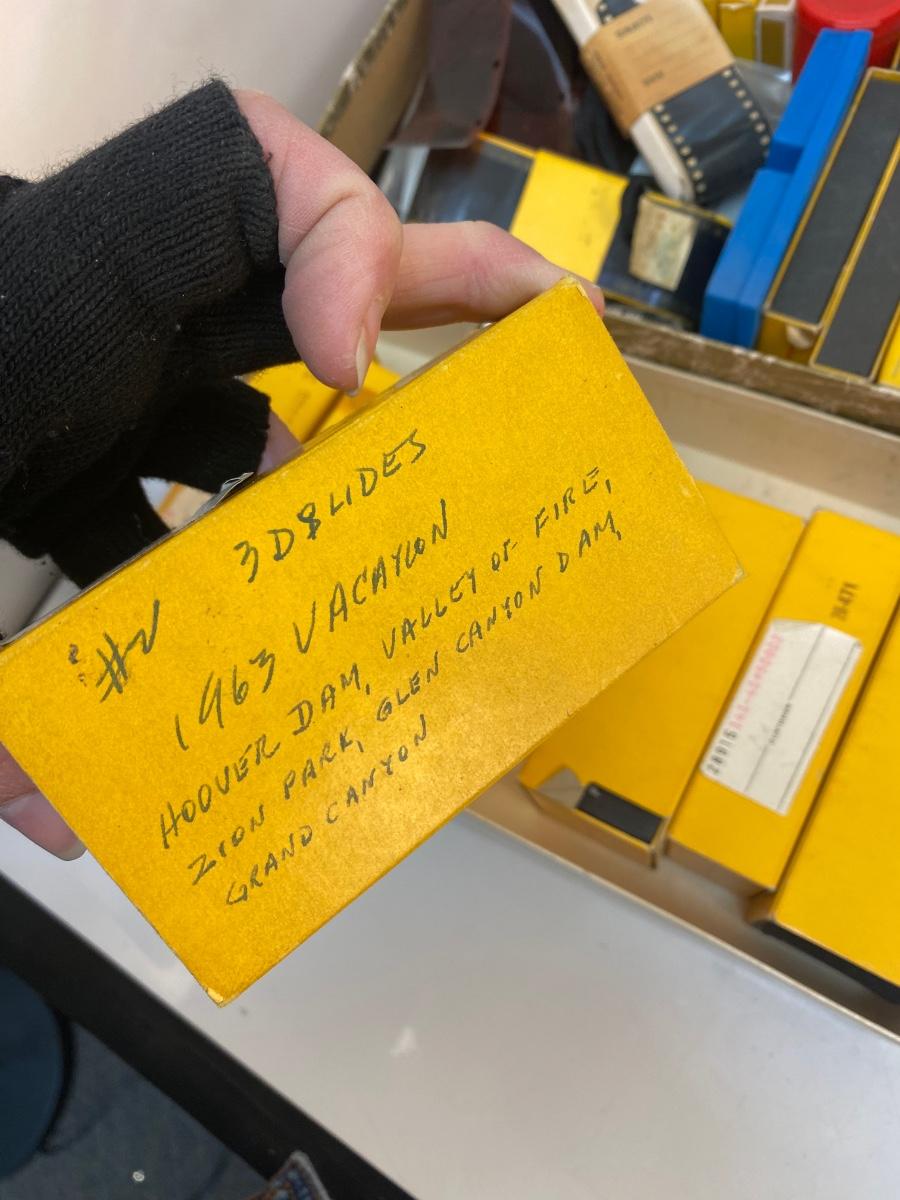 #2
3D SLIDES
1963 VACATION
HOOVER DAM, VALLEY OF FIRE,
ZION PARK, GLEN CANYON DAM,
GRAND CANYON